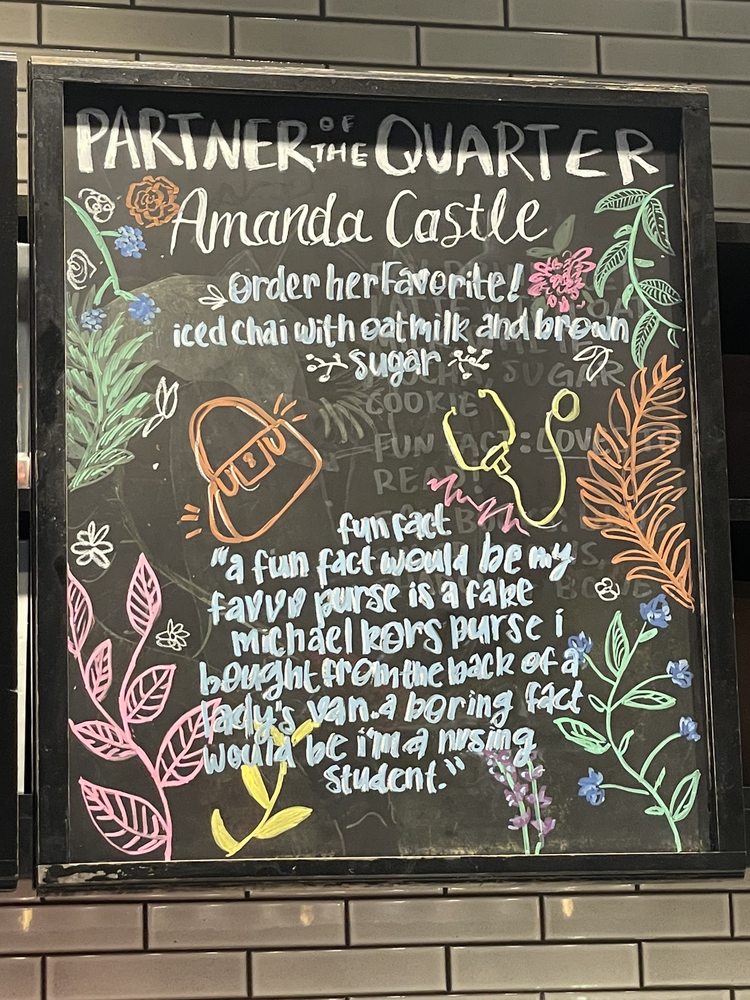 PARTNER OF THE QUARTER
Amanda Castle
order her Favorite!
iced chai with oatmilk and brown
sugar
COOKIE
FUN FACT: LOVES TO
READ!
fun fact
"a fun fact would be my
favvo purse is a fake
michael kors purse i
bought from the back of a
lady's van. a boring fact
would be i'm a nrsing
student."